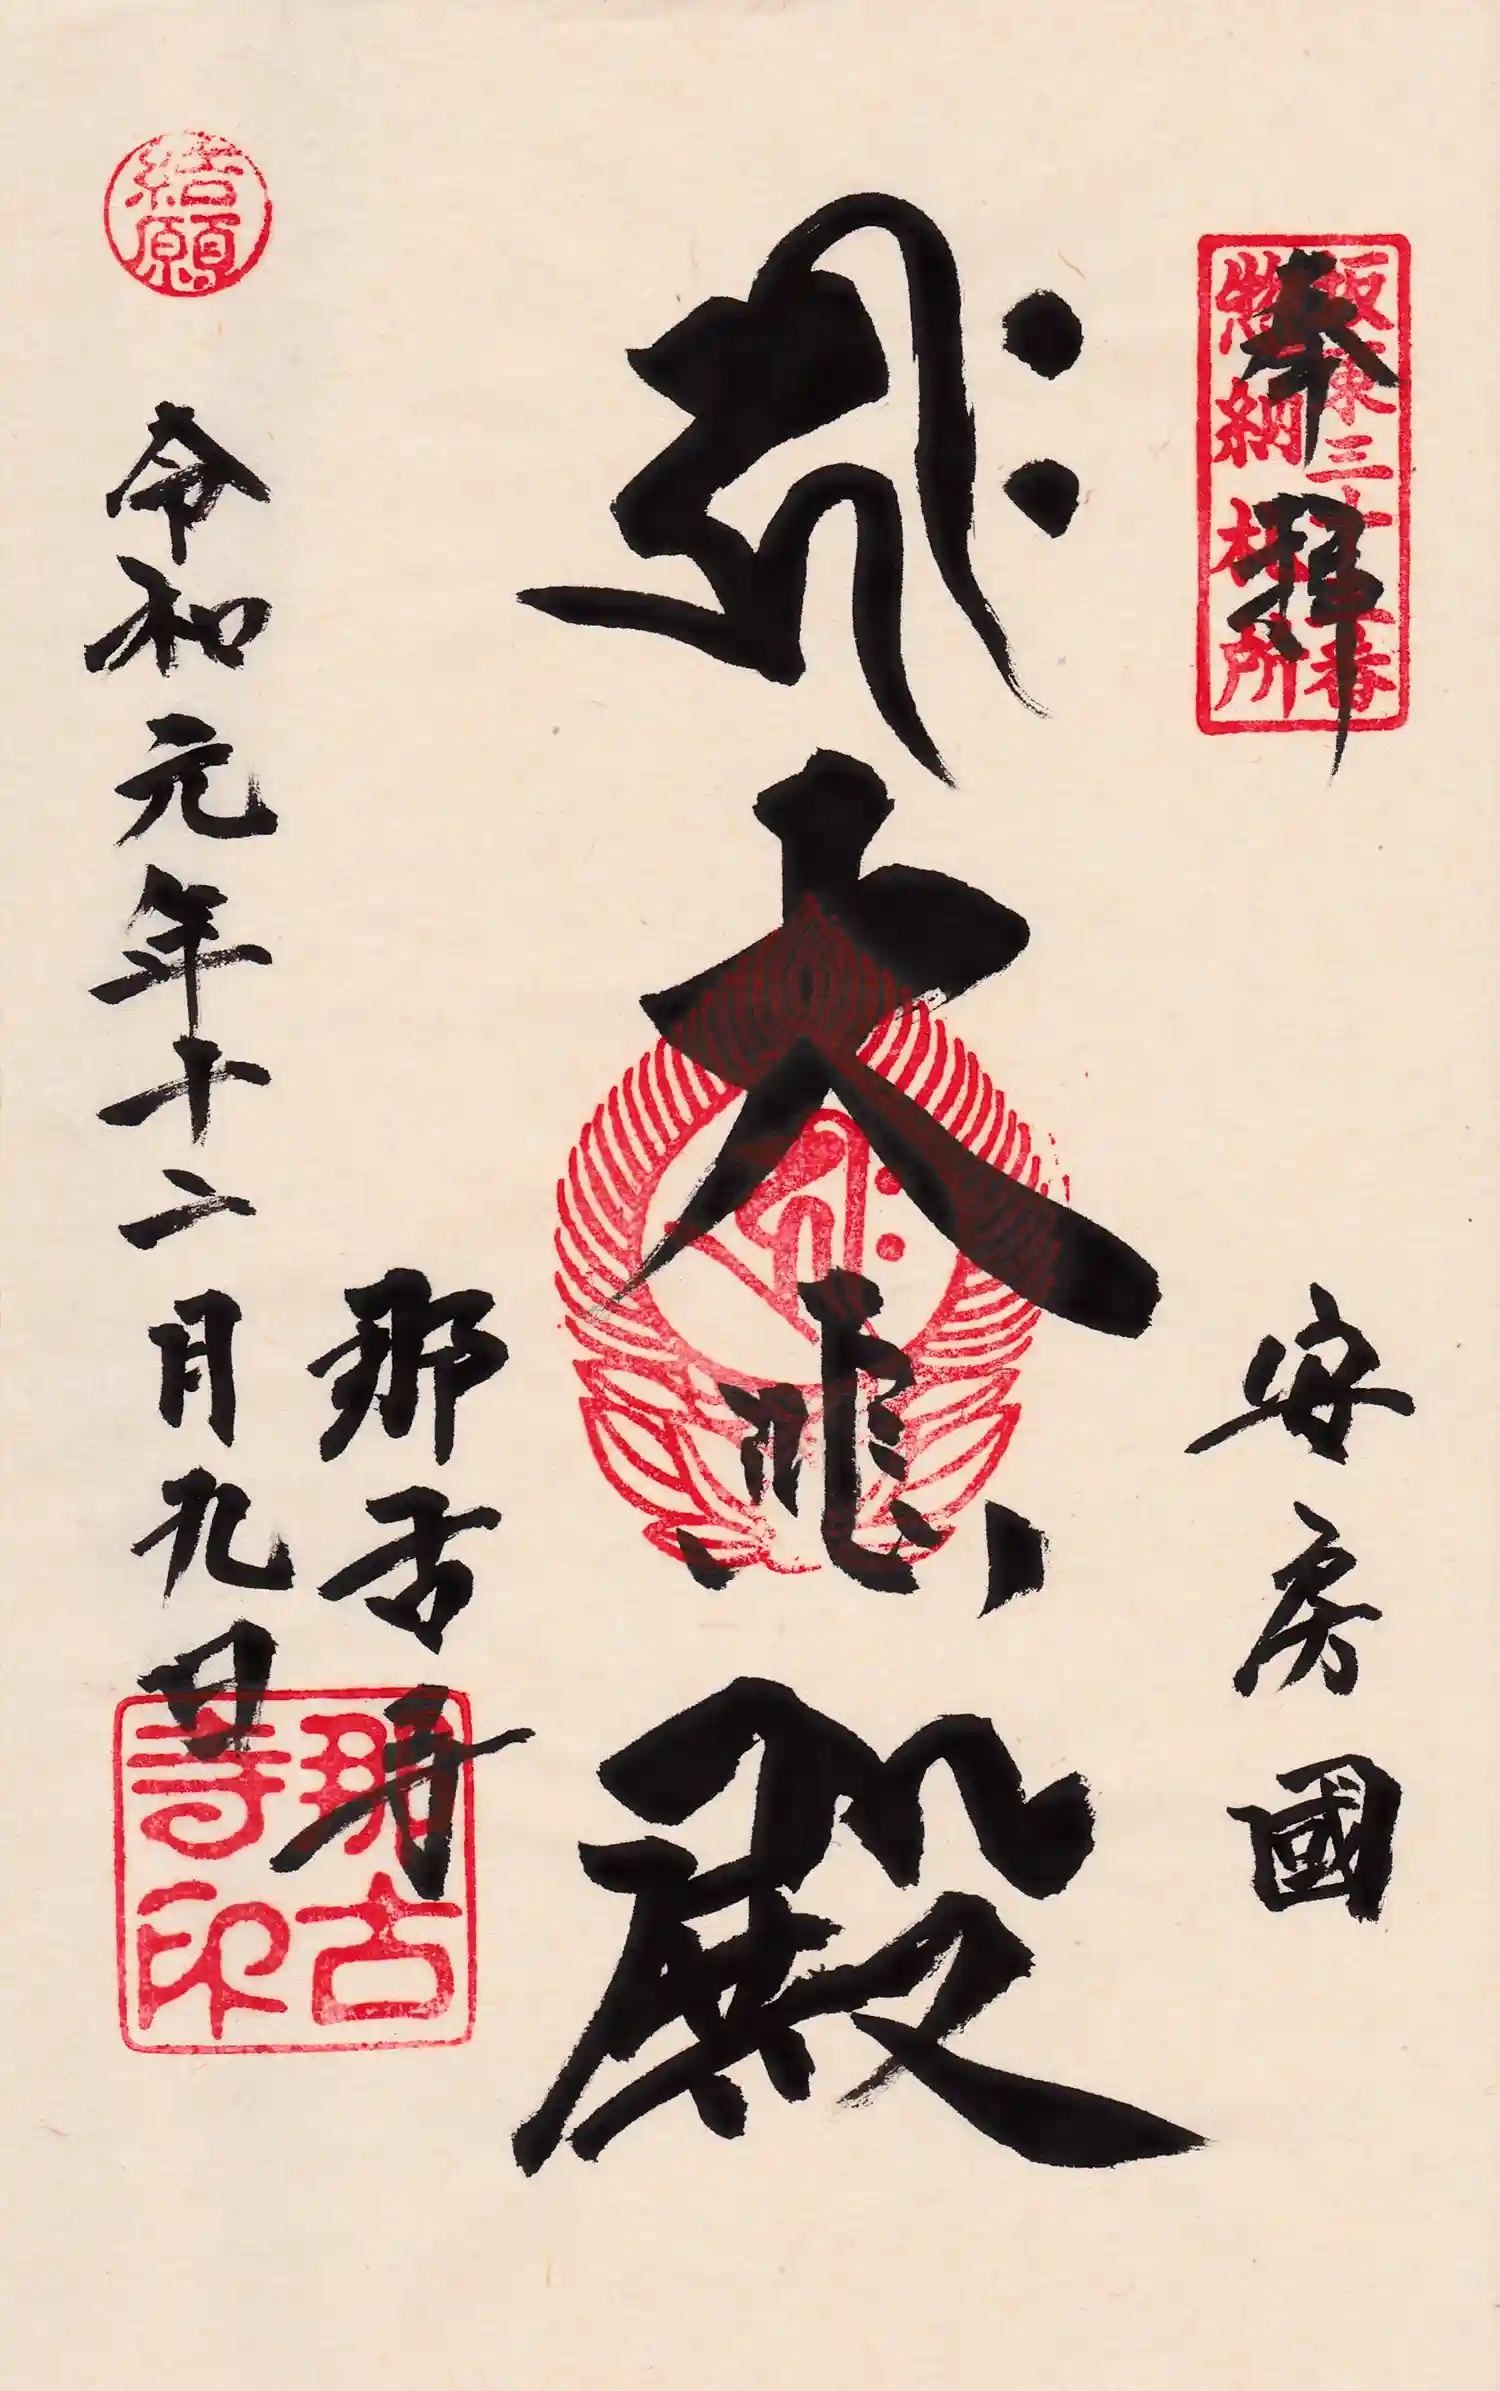 奉拝
坂東三十三番
惣納札所
安房國
𑖮𑖿𑖨𑖱𑖾
大悲殿
𑖮𑖿𑖨𑖱𑖾
那古寺
那古
寺印
結願
令和元年十二月九日